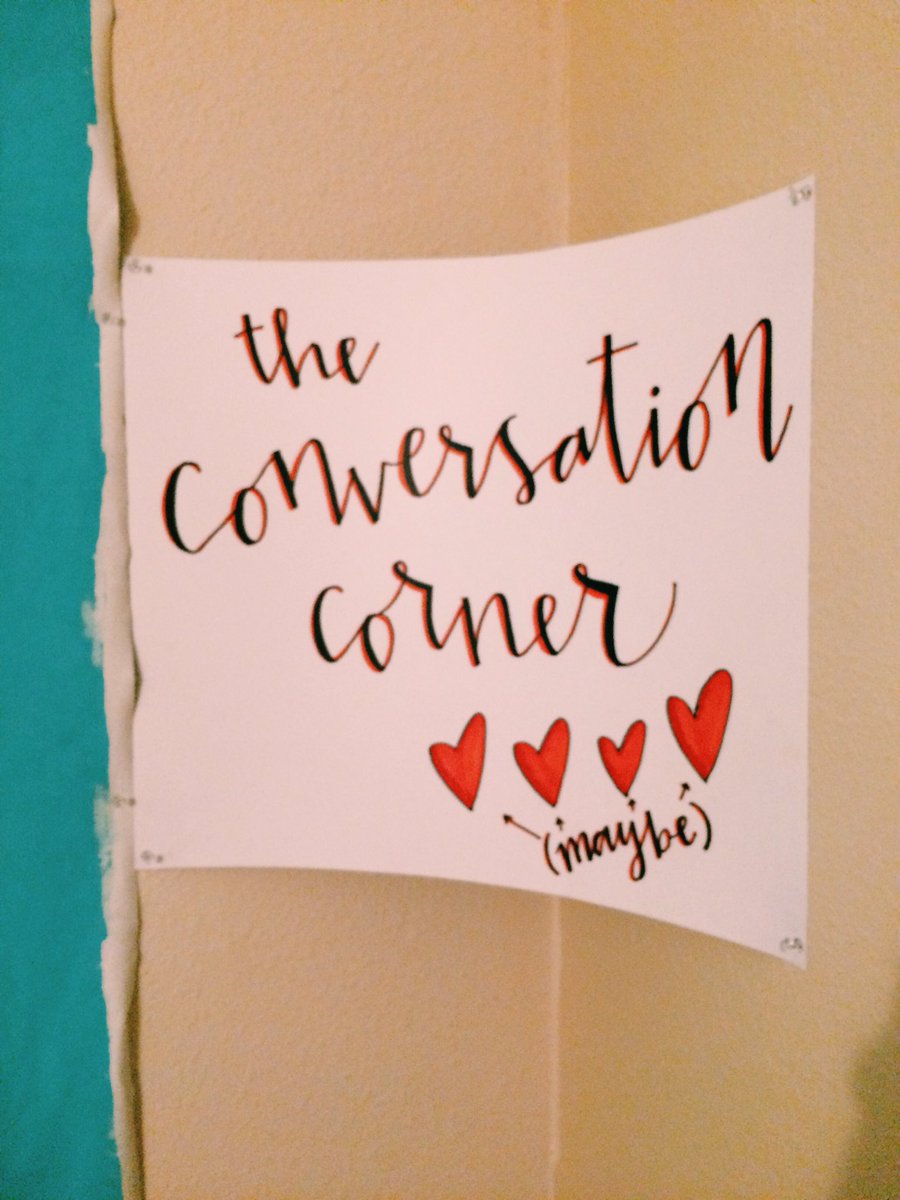 the
conversation
corner
(maybe)